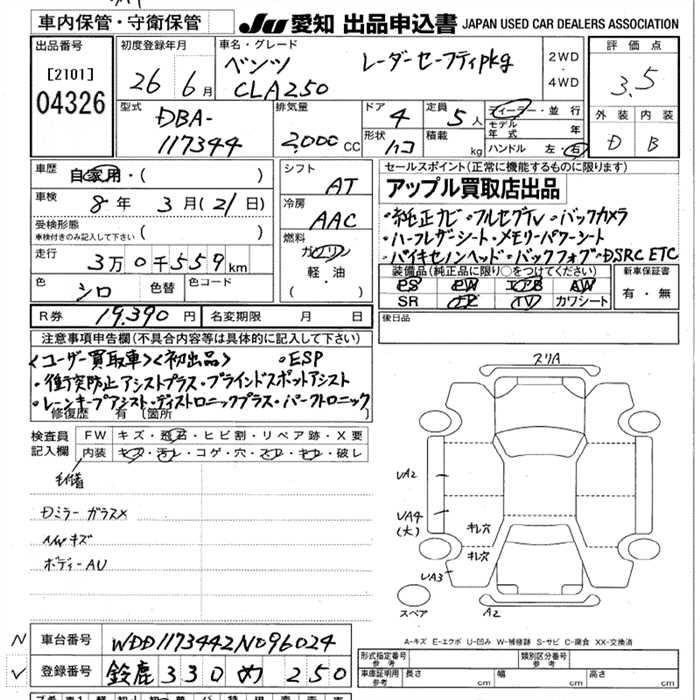 車内保管・守衛保管
JU 愛知 出品申込書 JAPAN USED CAR DEALERS ASSOCIATION
出品番号
[2101]
04326
初度登録年月
26年6月
車名・グレード
ベンツ レーダーセーフティpkg
CLA250
2WD
・
4WD
評価点
3.5
外装 内装
D B
型式
DBA-
117344
排気量
2,000 CC
ドア
4
形状
ハコ
定員
5人
積載
kg
ディーラー・並行
モデル年式 年
ハンドル 左・右
車歴
自家用・( )
車検
8年3月(21日)
受検形態
車検付きのみ記入して下さい ( )
走行
3万0千559km
色
シロ
色替
色コード
シフト
AT
冷房
AAC
燃料
ガソリン
軽・油
( )
セールスポイント(正常に機能するものに限ります)
アップル買取店出品
・純正ナビ・フルセグTV・バックカメラ
・ハーフレザーシート・メモリーパワーシート
・バイキセノンヘッド・バックフォグ・DSRC ETC
装備品(純正品に限り○をつけてください)
PS PW エアB AW
SR ナビ TV カワシート
新車保証書
有・無
R券 19,390円
名変期限 月 日
後日品
注意事項申告欄(不具合内容等は具体的に記入して下さい)
<ユーザー買取車><初出品> ・ESP
・衝突防止アシストプラス・ブラインドスポットアシスト
・レーンキープアシスト・ディストロニックプラス・パークトロニック
修復歴 有 (箇所
検査員
記入欄
FW キズ・飛石・ヒビ割・リペア跡・X要
内装 キズ・汚レ・コゲ・穴・スレ・キレ・破レ
Dミラー ガラスX
AWキズ
ボディーAU
スリA
UA2
UA4
(大)
キレ穴
キレ穴
UA3
スペア
A2
A-キズ E-エクボ U-凹み W-補修跡 S-サビ C-腐食 XX-交換済
N 車台番号 WDD1173442N096024
✓ 登録番号 鈴鹿330め250
形式指定番号
参考
類別区分番号
参考
車庫証明用
参考
長さ cm
幅 cm
高さ cm